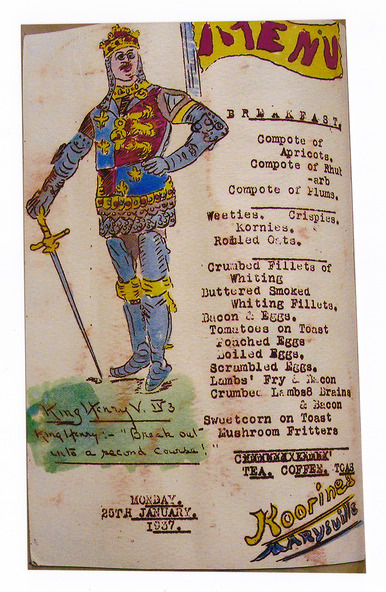 MENU
BREAKFAST.
Compote of
Apricots.
Compote of Rhub
-arb
Compote of Plums.
Weeties. Crispies.
Kornies.
Rolled Oats.
Crumbed Fillets of
Whiting
Buttered Smoked
Whiting Fillets.
Bacon & Eggs.
Tomatoes on Toast
Poached Eggs
Boiled Eggs.
Scrambled Eggs.
Lambs' Fry & Bacon
Crumbed Lambs Brains
& Bacon
Sweetcorn on Toast
Mushroom Fritters
TEA. COFFEE. TOAS
King Henry V. IV 3
King Henry:- "Break out
into a second course."
MONDAY.
25TH JANUARY.
1937.
Koorinee
MARYSVILLE